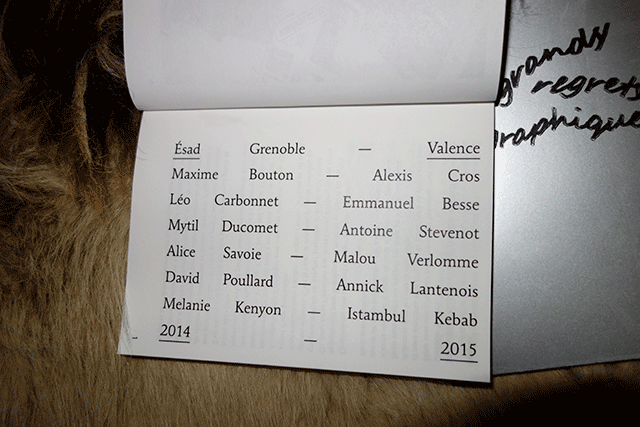 Ésad Grenoble — Valence
Maxime Bouton — Alexis Cros
Léo Carbonnet — Emmanuel Besse
Mytil Ducomet — Antoine Stevenot
Alice Savoie — Malou Verlomme
David Poullard — Annick Lantenois
Melanie Kenyon — Istambul Kebab
2014 — 2015
grands
regrets
graphique